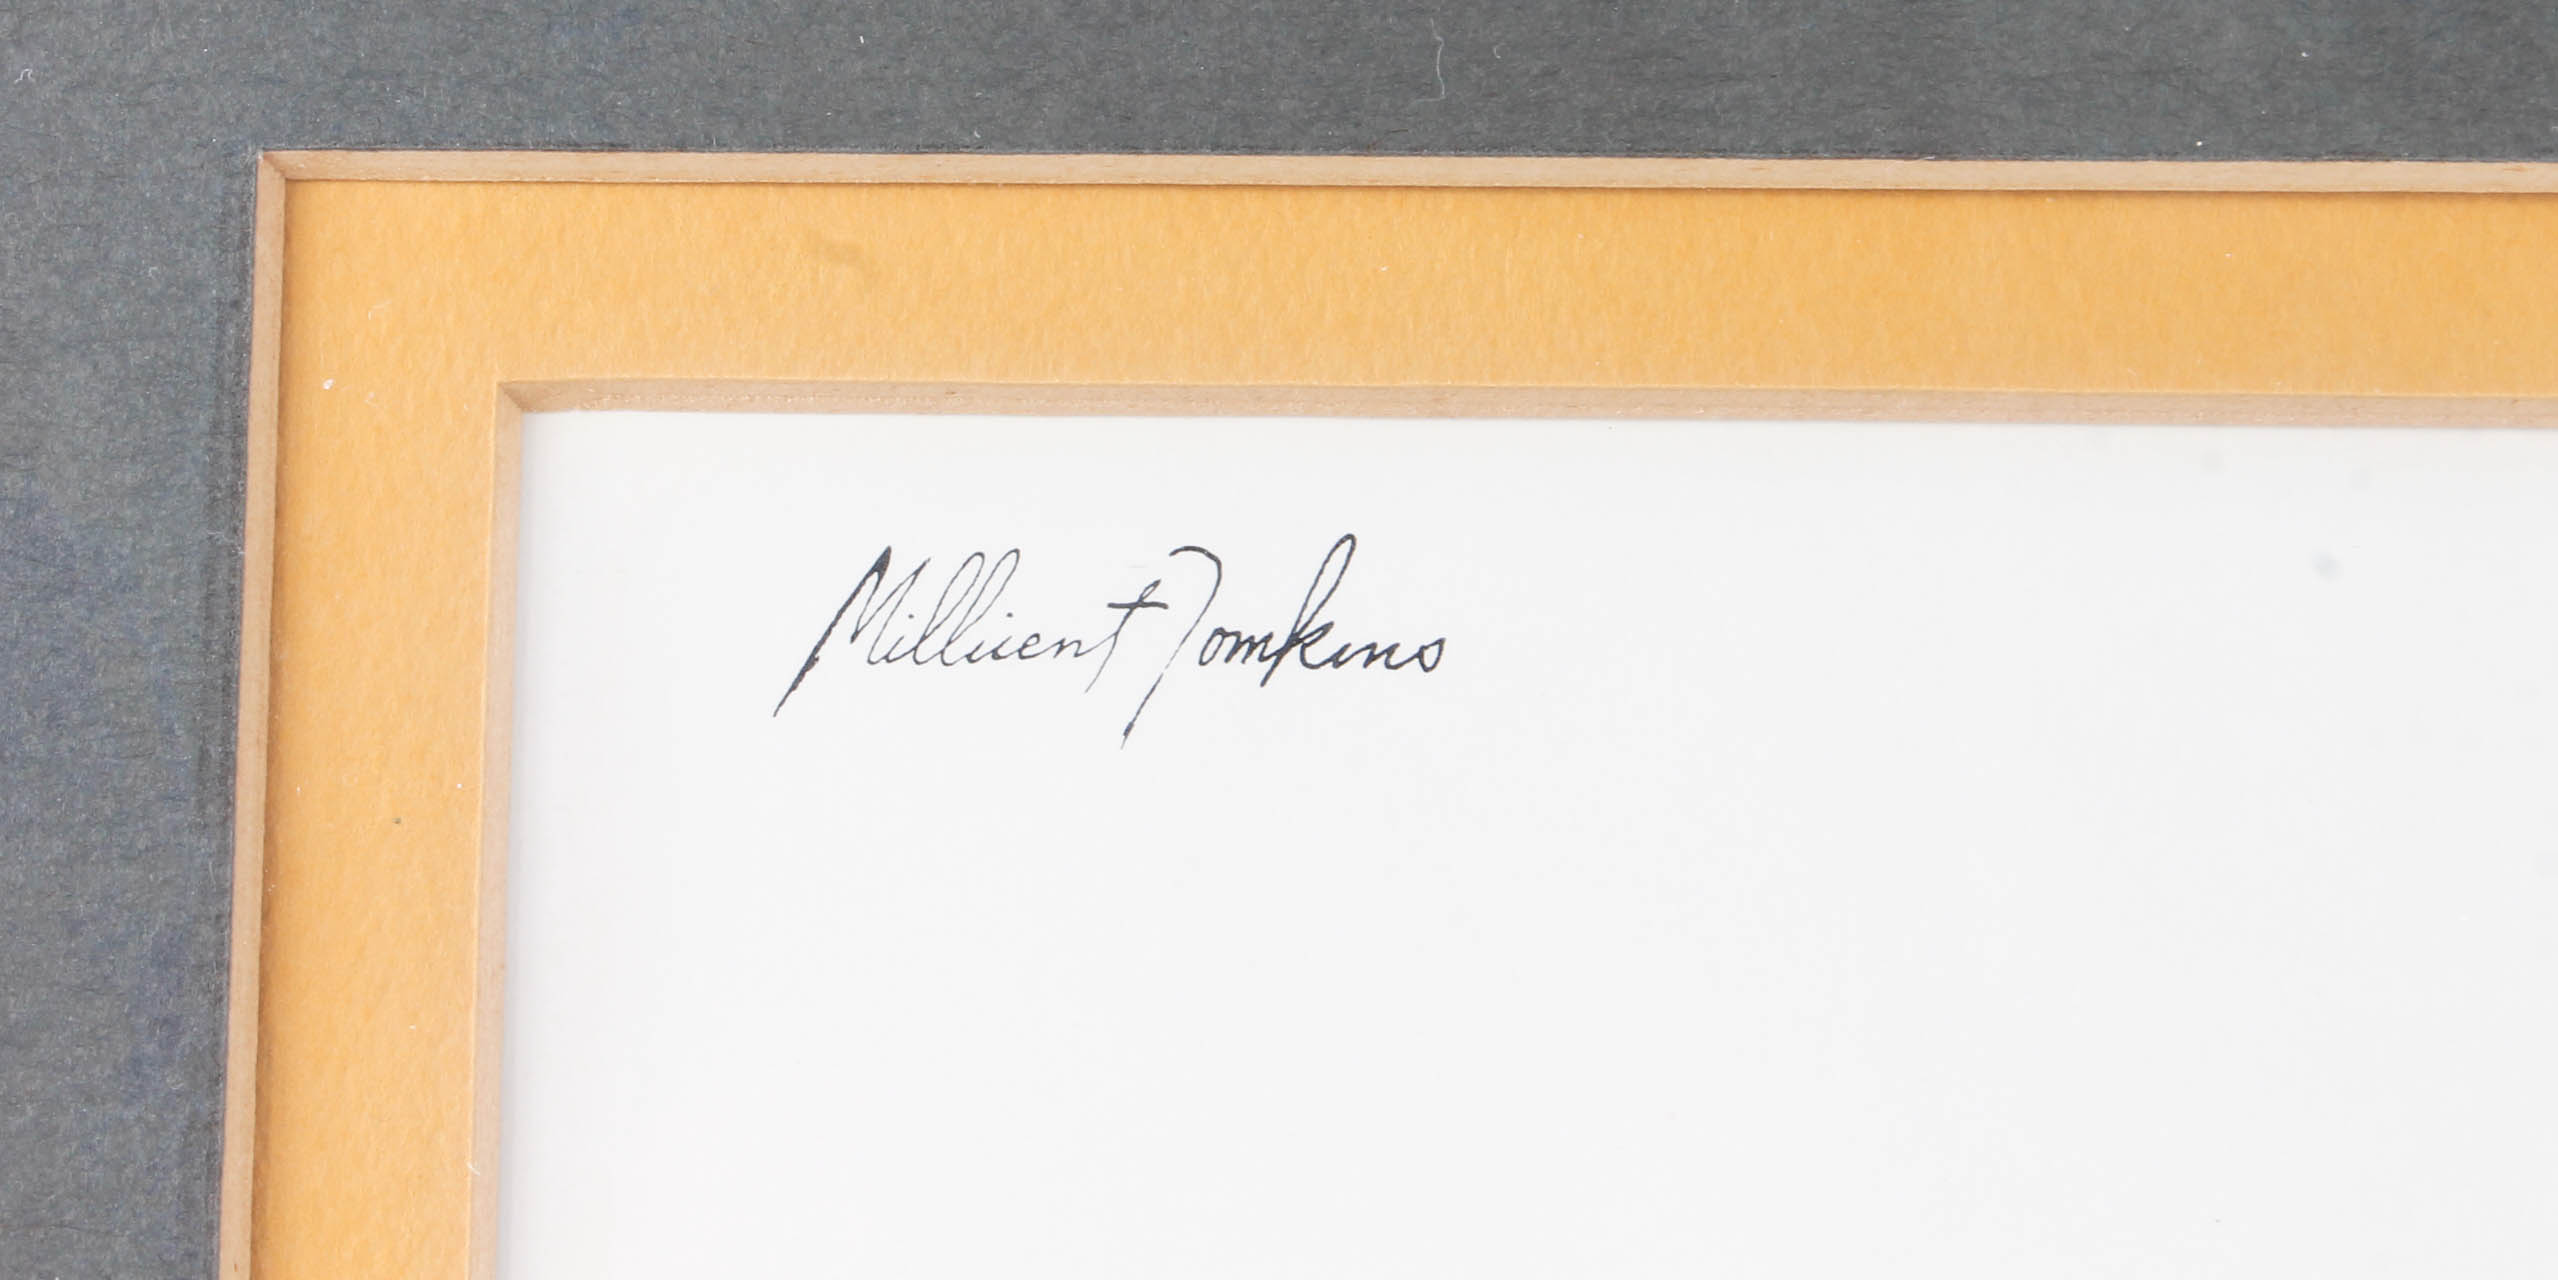 Millicent Tomkins